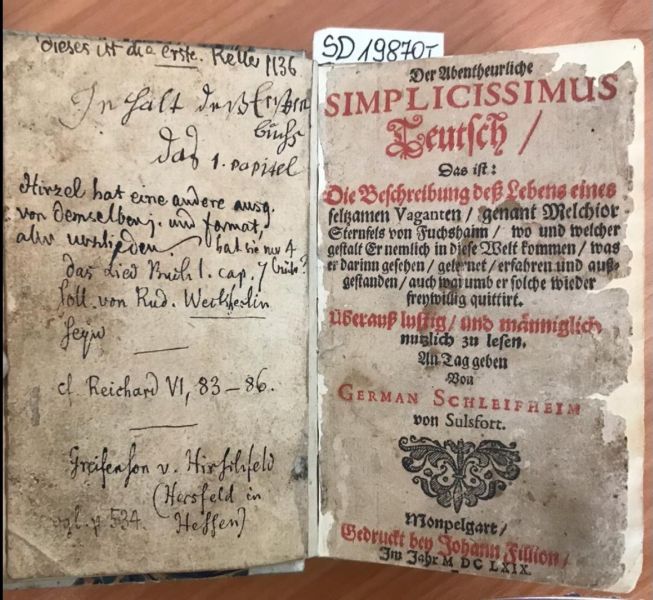 dieses ist die erste. Keller 1136
Inhalt deß Ersten
buchs
Das 1. capitel
Hirzel hat eine andere ausg.
von demselben j. und format,
aber verschieden. hat sie nur 4
das Lied Buch 1. cap. 7
soll von Rud. Weckherlin
seyn
cf. Reichard VI, 83–86.
Greifenson v. Hirschfeld
(Hersfeld in
vgl. p. 534. Hessen)
SD 19870T
Der Abentheurliche
SIMPLICISSIMUS
Teutsch /
Das ist:
Die Beschreibung deß Lebens eines
seltzamen Vaganten / genant Melchior
Sternfels von Fuchshaim / wo und welcher
gestalt Er nemlich in diese Welt kommen / was
er darinn gesehen / gelernet / erfahren und auß-
gestanden / auch warumb er solche wieder
freywillig quittirt.
Überauß lustig / und männiglich
nutzlich zu lesen.
An Tag geben
Von
GERMAN SCHLEIFHEIM
von Sulsfort.
Monpelgart /
Gedruckt bey Johann Fillion /
Im Jahr M DC LXIX.